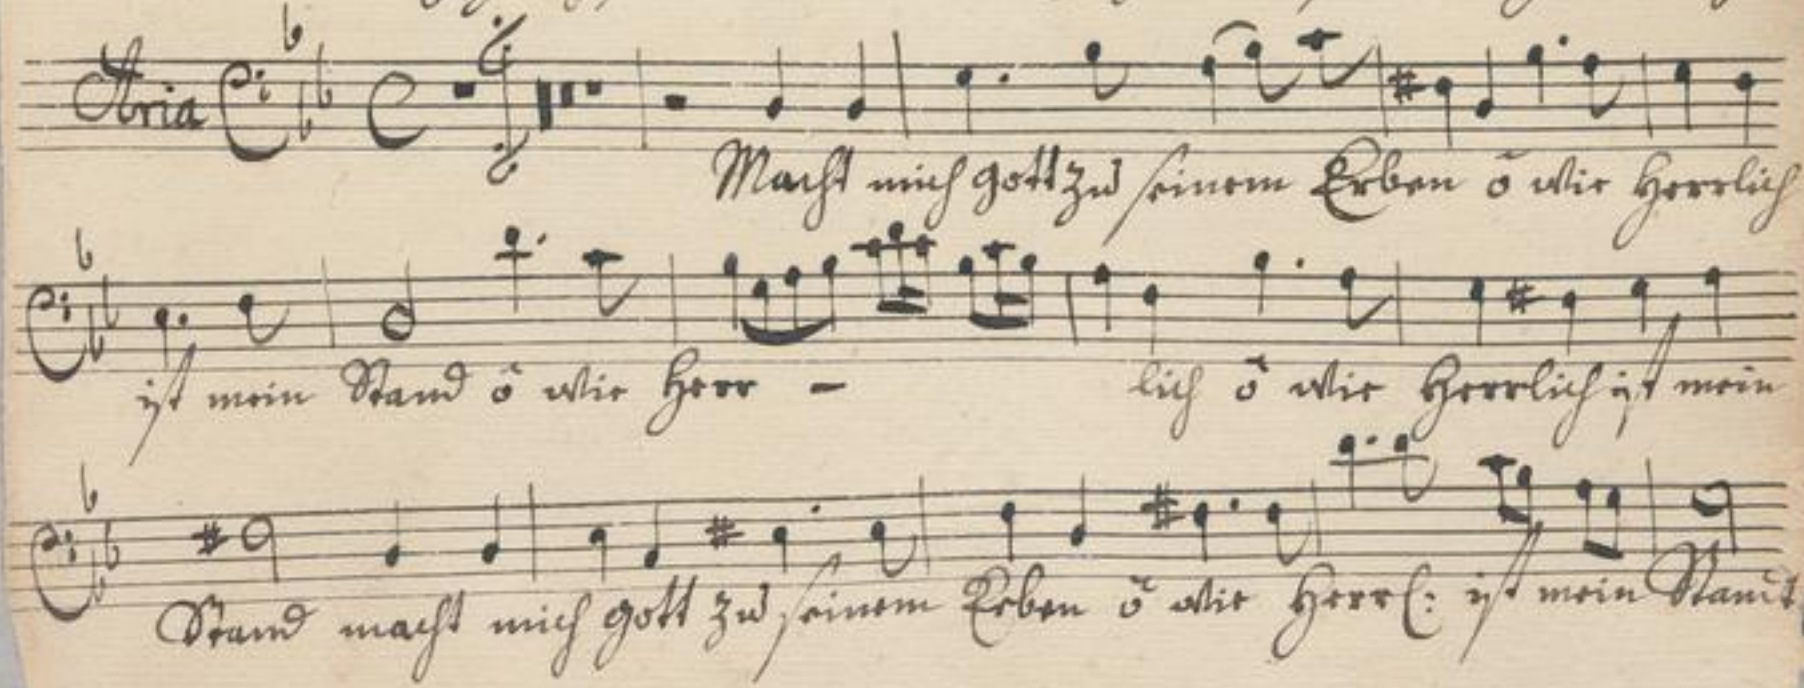 Aria
Macht mich Gott zu seinem Erben ô wie Herrlich
ist mein Stand ô wie Herr - lich ô wie Herrlich ist mein
Stand macht mich Gott zu seinem Erben ô wie Herrl: ist mein Stand